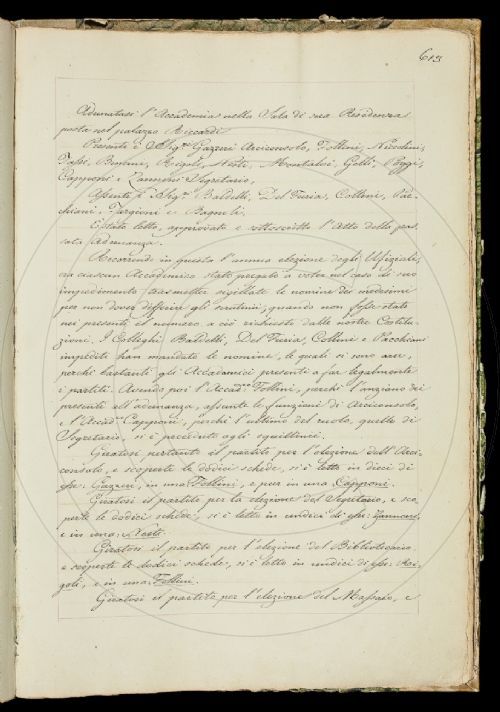 613
Adunatasi l'Accademia nella Sala di sua Residenza
posta nel palazzo Riccardi
Presenti i Sigri Gazzeri Arciconsolo, Follini, Niccolini,
Fossi, Bencini, Rigoli, Nesti, Montalvi, Gelli, Poggi,
Capponi e Zannoni Segretario,
Assenti i Sigri Baldelli, Del Furia, Collini, Pac-
chiani, Targioni e Bagnoli.
È stato letto, approvato e sottoscritto l'Atto della pas-
sata Adunanza.
Ricorrendo in questo l'annua elezione degli Ufiziali,
era ciascun Accademico stato pregato a voler nel caso di suo
impedimento trasmetter sigillate le nomine dei medesimi
per non dover differire gli scrutinii, quando non fosse stato
nei presenti il numero a ciò richiesto dalle nostre Costitu-
zioni. I Colleghi Baldelli, Del Furia, Collini e Pacchiani
impediti han mandato le nomine, le quali si sono arse,
perchè bastanti gli Accademici presenti a far legalmente
i partiti. Avendo poi l'Accadco Follini, perchè l'anziano dei
presenti all'adunanza, assunte le funzioni di Arciconsolo,
e l'Accadco Capponi, perchè l'ultimo del ruolo, quelle di
Segretario, si è proceduto agli squittinii.
Giratosi pertanto il partito per l'elezione dell'Arci-
consolo, e scoperte le dodici schede, si è letto in dieci di
esse: Gazzeri, in una Follini, e pure in una Capponi.
Giratosi il partito per la elezione del Segretario, e sco-
perte le dodici schede, si è letto in undici di esse: Zannoni,
e in una: Nesti.
Giratosi il partito per l'elezione del Bibliotecario
e scoperte le dodici schede, si è letto in undici di esse: Ri-
goli, e in una: Follini.
Giratosi il partito per l'elezione del Massaio, e